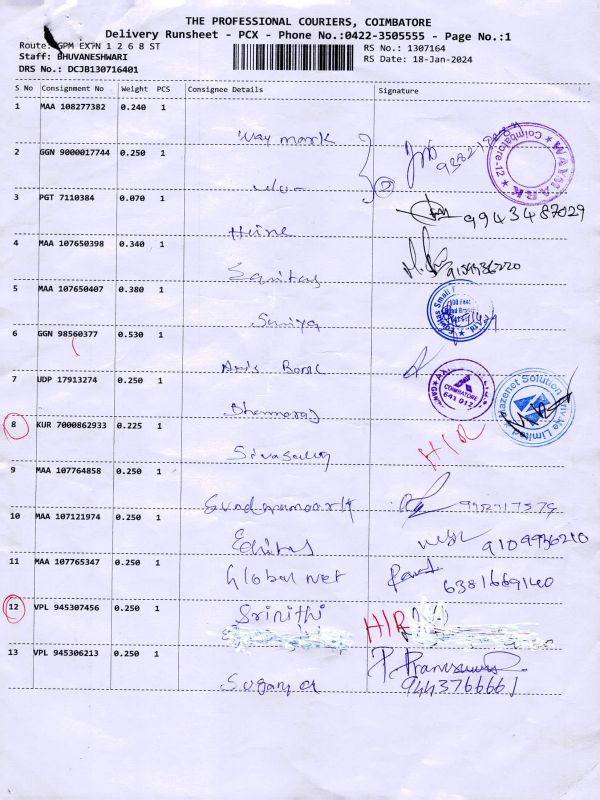 THE PROFESSIONAL COURIERS, COIMBATORE
Delivery Runsheet - PCX - Phone No.:0422-3505555 - Page No.:1
Route: GPM EX7N 1 2 6 8 ST
RS No.: 1307164
Staff: BHUVANESHWARI
RS Date: 18-Jan-2024
DRS No.: DCJB130716401
S No Consignment No Weight PCS Consignee Details Signature
1 MAA 108277382 0.240 1
Way mark
2 GGN 9000017744 0.250 1
WAYMARK Coimbatore-12
3 PGT 7110384 0.070 1
9943487029
4 MAA 107650398 0.340 1
Equitas
9109936220
5 MAA 107650407 0.380 1
Equitas Small
6 GGN 98560377 0.530 1
Axis Bank
COIMBATORE
641 012
7 UDP 17913274 0.250 1
Dharmaraj
Kazenet Solution Private Limited
8 KUR 7000862933 0.225 1
H/R
9 MAA 107764858 0.250 1
Sundaramoorty
10 MAA 107121974 0.250 1
Equitas
9109936210
11 MAA 107765347 0.250 1
Global net
6381669140
12 VPL 945307456 0.250 1
Srinithi
H/R
13 VPL 945306213 0.250 1
Suganya
9443766661